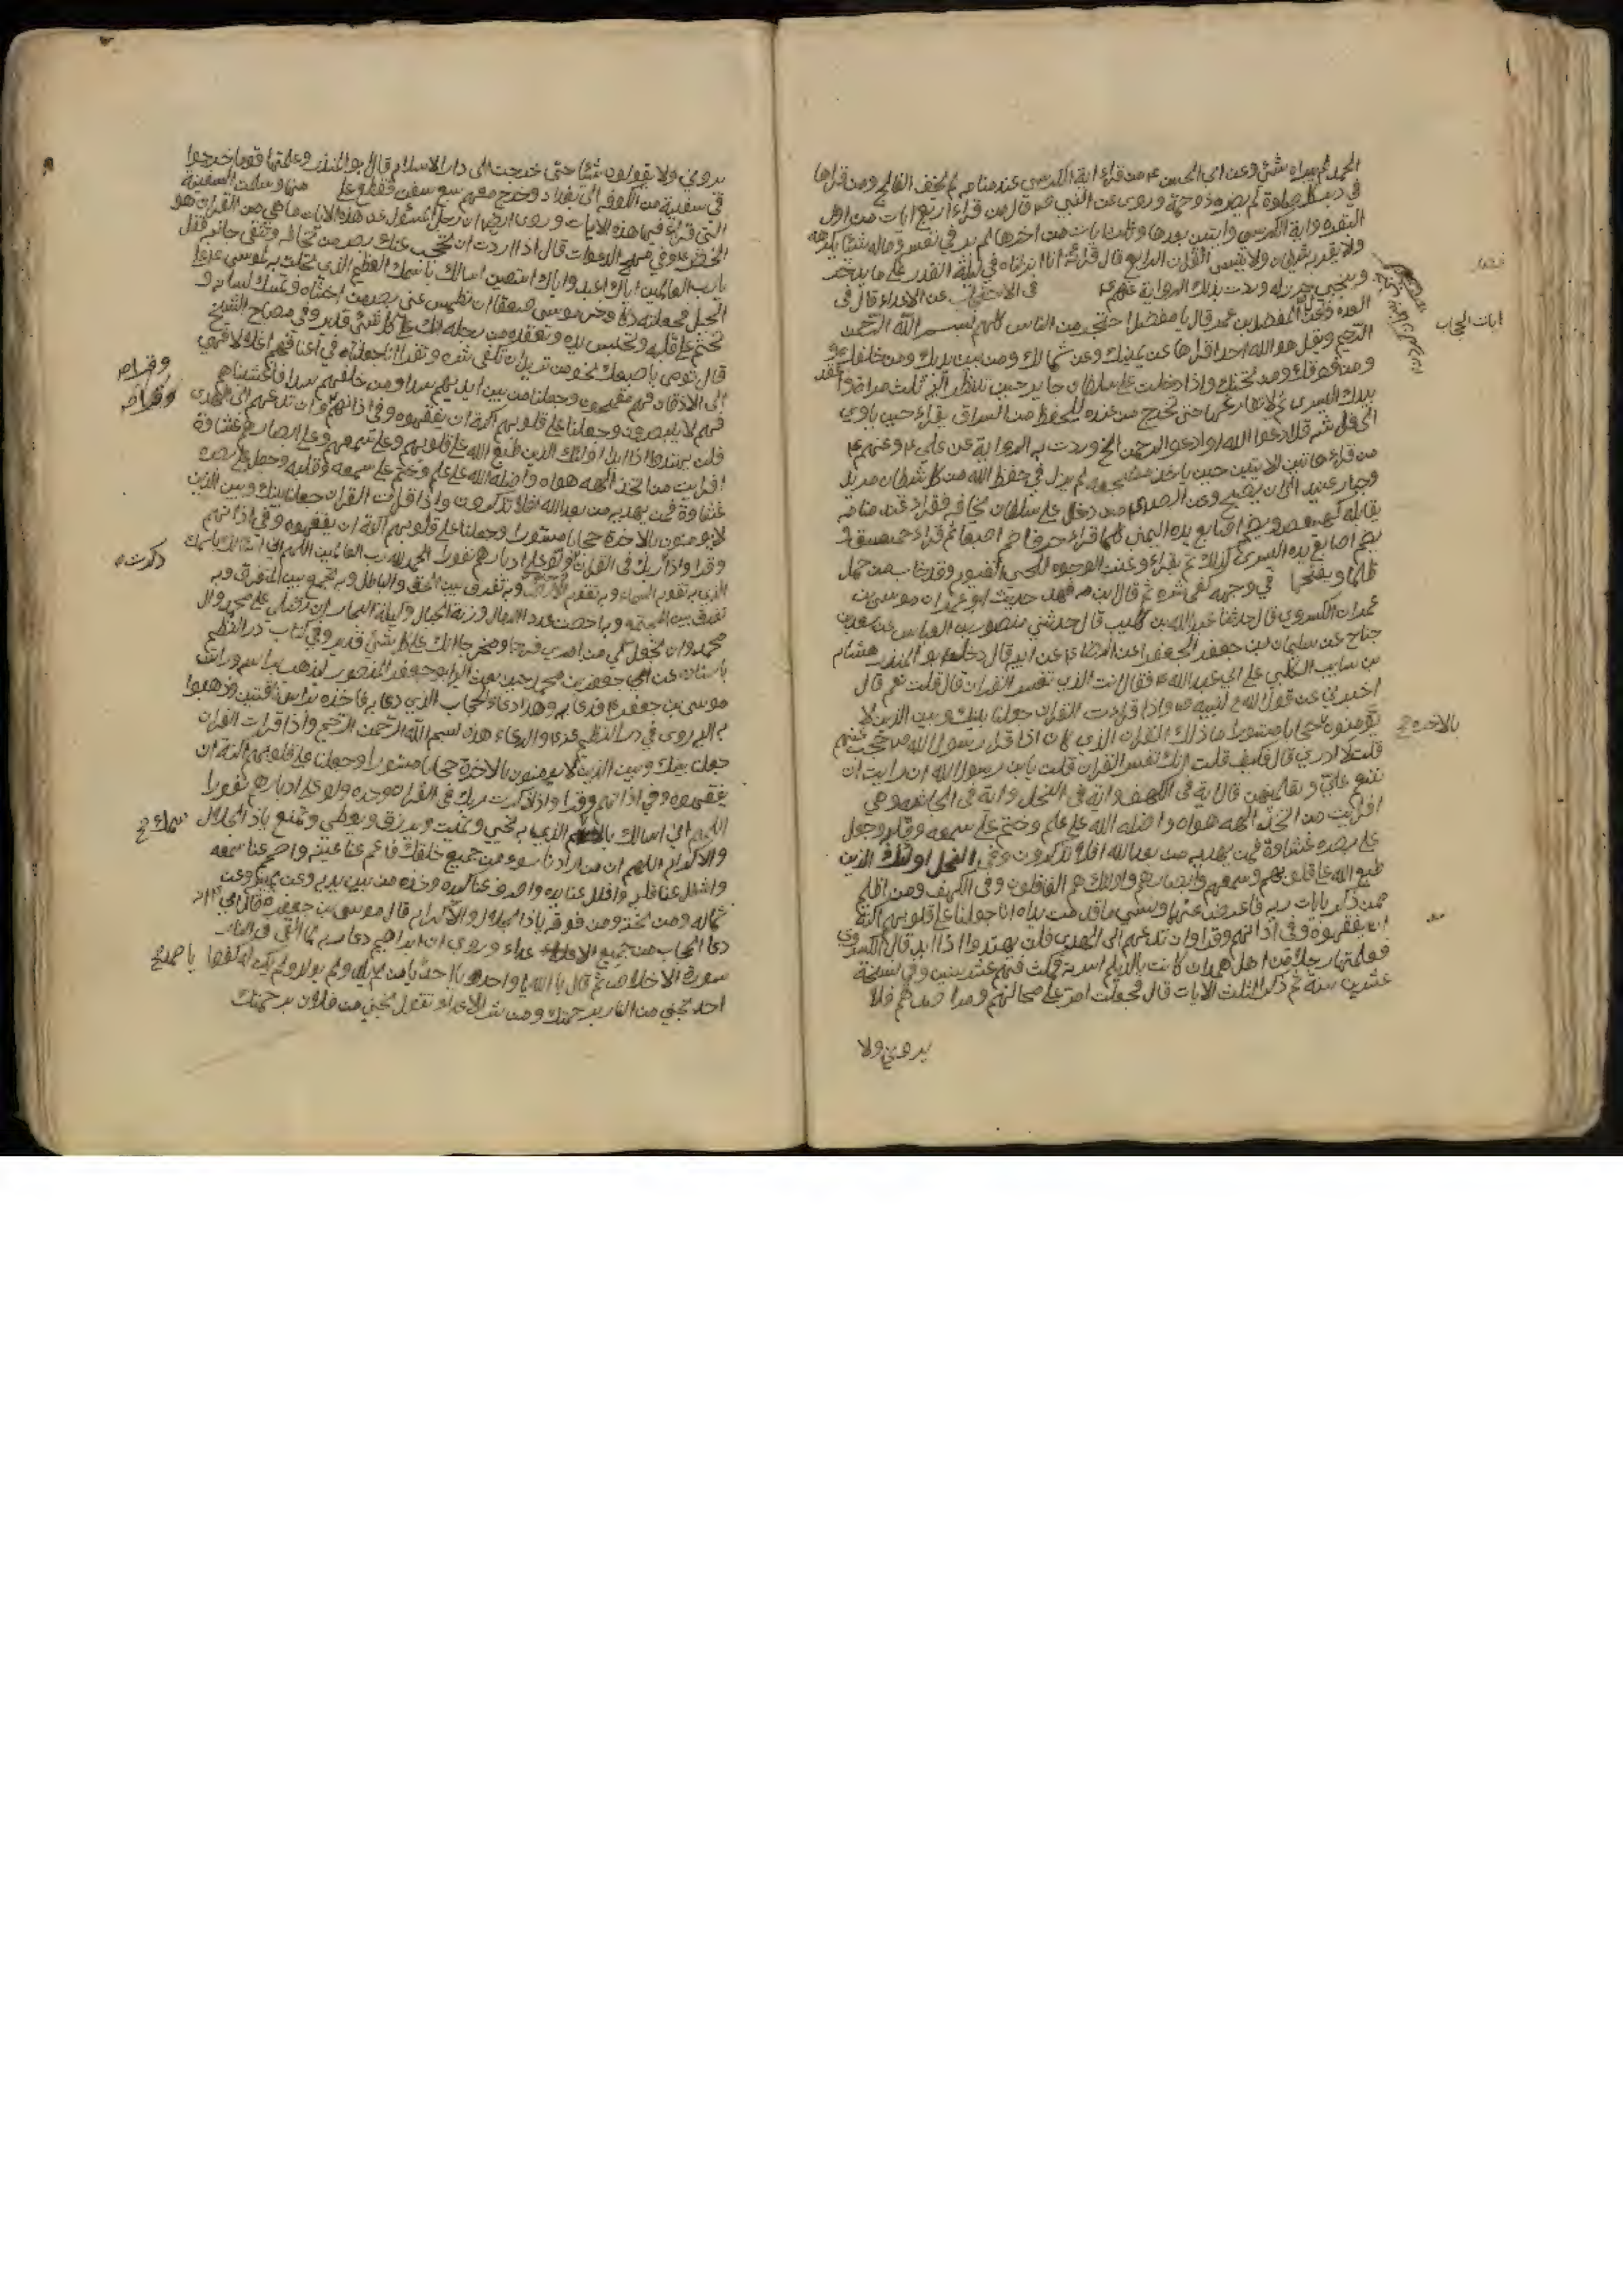 الحمد لم يبراه شئ وعن ابي الحسن ع من قراء اية الكرسي عند منامه لم يخف الفالج ومن قراها
في دبر كل صلوة لم يضره ذو حمة وروى عن النبي ص قال من قراء اربع ايات من اول
البقره واية الكرسي وايتين بعدها وثلث ايات من اخرها لم ير في نفسه وماله شيئا يكرهه
ولا يقربه شيطان ولا ينسى القران الرابع قال قرائة انا انزلناه في ليلة القدر على ما يدخر
ويخبى حرز له وردت بذلك الرواية عنهم ع في الاحتجاب عن الاعداء قال في
العدة وعن المفضل بن عمر قال يا مفضل احتجز من الناس كلهم ببسم الله الرحمن
الرحيم وبقل هو الله احد اقراها عن يمينك وعن شمالك ومن بين يديك ومن خلفك
ومن فوقك ومن تحتك واذا دخلت على سلطان جاير حين تنظر اليه ثلث مرات واعقد
بيدك اليسرى ثم لا تفارقها حتى تخرج من عنده للحفظ من السراق يقراء حين ياوي
الى فراشه قل ادعوا الله او ادعوا الرحمن الخ وردت به الرواية عن علي ع وعنهم ع
من قراء هاتين الايتين حين ياخذ مضجعه لم يزل في حفظ الله من كل شيطان مريد
وجبار عنيد الى ان يصبح وعن الصادق ع من دخل على سلطان يخافه فقراء عند ما
يقابله كهيعص ويضم اصابع يده اليمنى كلما قراء حرفا ضم اصبعا ثم قراء حمعسق و
يضم اصابع يده اليسرى كذلك ثم يقراء وعنت الوجوه للحي القيوم وقد خاب من حمل
ظلما ويفتحها في وجهه كفى شره ثم قال بن فهد حديث ابو عمران موسى بن
عمران الكسروي قال حدثنا عبد الله بن كليب قال حدثني منصور بن العباس عن سعيد بن
جناح عن سليمان بن جعفر الجعفري عن الرضا ع عن ابيه قال دخل ابو المنذر هشام
بن سايب الكلبي على ابي عبد الله ع فقال انت الذي تفسر القران قال قلت نعم قال
اخبرني عن قول الله لنبيه ص واذا قراءت القران جعلنا بينك وبين الذين لا
يؤمنون حجابا مستورا ما ذلك القران الذي كان اذا قراه رسول الله ص حجب عنهم
قلت لا ادري قال فكيف قلت انك تفسر القران قلت يا بن رسول الله ان رايت ان
تنعم علي وتعلمنيهن قال اية في الكهف واية في النحل واية في الجاثيه وهي
افرايت من اتخذ الهه هواه واضله الله على علم وختم على سمعه وقلبه وجعل
على بصره غشاوة فمن يهديه من بعد الله افلا تذكرون وفي النحل اولئك الذين
طبع الله على قلوبهم وسمعهم وابصارهم واولئك هم الغافلون وفي الكهف ومن اظلم
ممن ذكر بايات ربه فاعرض عنها ونسى ما قدمت يداه انا جعلنا على قلوبهم اكنة
ان يفقهوه وفي اذانهم وقرا وان تدعهم الى الهدى فلن يهتدوا اذا ابدا قال الكسروي
فعلمتها رجلا من اهل همدان كانت بالديلم اسرته فمكث فيهم عشر سنين وفي نسخة
عشرين سنة ثم ذكر الثلث الايات قال فجعلت امر على محالهم ومراصدهم فلا
يروني ولا
ايات الحجاب
بالاخره خ
يروني ولا يقولون شيئا حتى خرجت الى دار الاسلام قال ابو المنذر وعلمتها قوما خرجوا
في سفينة من الكوفه الى بغداد وخرج معهم سبع سفن فقطع على منها وسلمت السفينة
التي قراء فيها هذه الايات وروى ايضا ان رجلا سئل عن هذه الايات ما هي من القران هو
الخضر ع وفي مهج الدعوات قال اذا اردت ان تحجب عنك بصر من تخافه وتتقى جانبه فقل
يا رب العالمين اياك اعبد واياك استعين اسالك باسمك العظيم الذي تجليت به لموسى على
الجبل فجعلته دكا وخر موسى صعقا ان تطمس عني بصر من اخشاه وتمسك لسانه و
تختم على قلبه وتحبس يده وتقعده من رجله انك على كل شئ قدير وفي مصباح الشيخ
قال تومي باصبعك نحو من تريد ان تكفى شره وتقرا انا جعلنا في اعناقهم اغلالا فهي
الى الاذقان فهم مقمحون وجعلنا من بين ايديهم سدا ومن خلفهم سدا فاغشيناهم
فهم لا يبصرون وجعلنا على قلوبهم اكنة ان يفقهوه وفي اذانهم وان تدعهم الى الهدى
فلن يهتدوا اذا ابدا اولئك الذين طبع الله على قلوبهم وعلى سمعهم وعلى ابصارهم غشاوة
افرايت من اتخذ الهه هواه واضله الله على علم وختم على سمعه وقلبه وجعل على بصره
غشاوة فمن يهديه من بعد الله افلا تذكرون واذا قرات القران جعلنا بينك وبين الذين
لا يومنون بالاخرة حجابا مستورا وجعلنا على قلوبهم اكنة ان يفقهوه وفي اذانهم
وقرا واذا ربك في القران ولوا على ادبارهم نفورا الحمد لله رب العالمين اللهم اني اسالك باسمك
الذي به تقوم السماء وبه تقوم الارض وبه تفرق بين الحق والباطل وبه تجمع بين المتفرق وبه
تفرق بين المجتمع وبه احصيت عدد الرمال وزنة الجبال وكيل البحار ان تصلي على محمد وال
محمد وان تجعل لي من امري فرجا ومخرجا انك على كل شئ قدير وفي كتاب در النظيم
باسناده عن ابي جعفر بن محمد حين بعث اليه ابو جعفر المنصور ليذهب براسه وراس
موسى بن جعفر ع فدعى به وهذا دعاء الحجاب الذي دعى به فاخذه براس ناقتين وذهبوا
بهم اليه روى في در النظيم والدعاء هذا بسم الله الرحمن الرحيم واذا قرات القران
جعلنا بينك وبين الذين لا يومنون بالاخرة حجابا مستورا وجعلنا على قلوبهم اكنة ان
يفقهوه وفي اذانهم وقرا واذا ذكرت ربك في القران وحده ولوا على ادبارهم نفورا
اللهم اني اسالك بالاسم الذي به تحيي وتميت وترزق وتعطي وتمنع ياذ الجلال
والاكرام اللهم ان من ارادنا بسوء من جميع خلقك فاعم عنا عينه واصمم عنا سمعه
واشغل عنا قلبه واغلل عنا يده واصرف عنا كيده وخذه من بين يديه وعن يمينه وعن
شماله ومن تحته ومن فوقه ياذا الجلال والاكرام قال موسى بن جعفر ع قال ابي انه
دعا الحجاب من جميع الاعداء وروى ان ابراهيم دعا ربه لما القى في النار
سورة الاخلاص ثم قال يا الله يا واحد يا احد يا من لم يلد ولم يولد ولم يكن له كفوا
احد نجني من النار برحمتك ومن شر الاعداء تقول نجني من فلان برحمتك
وقرا ص
وقرا ص
ذكرت
باسمك خ
يا صمد خ